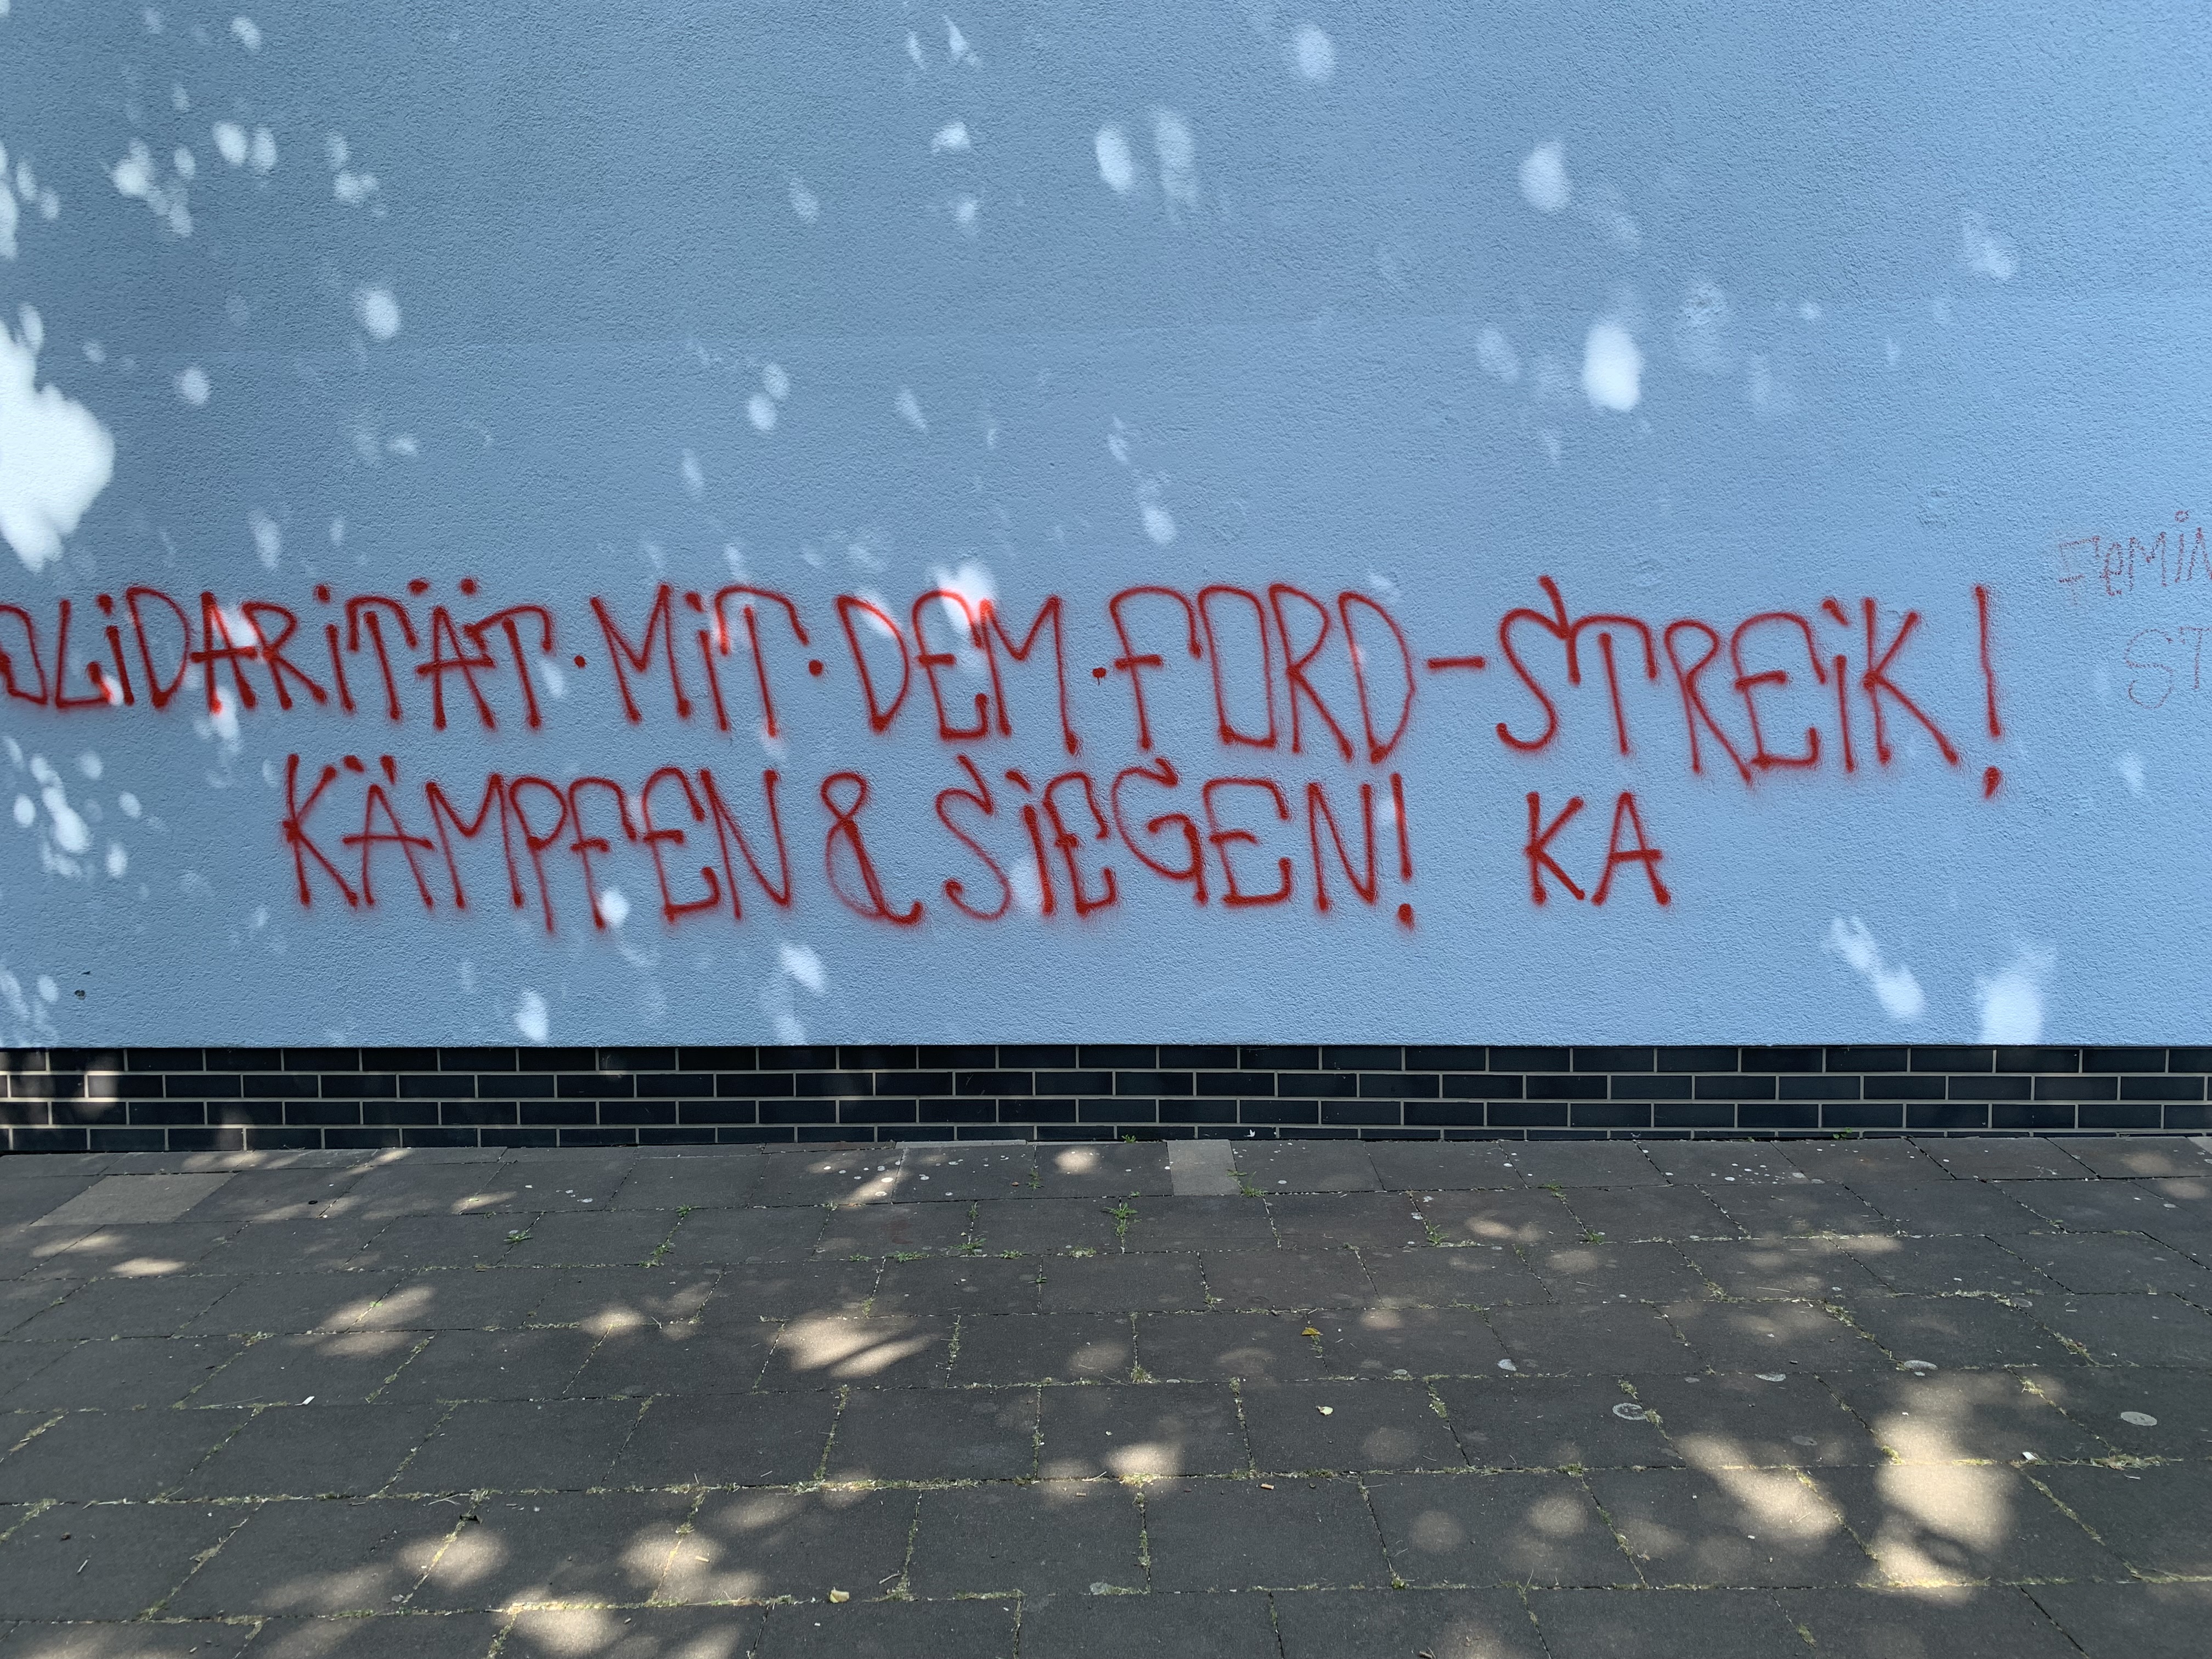 SOLIDARITÄT · MIT · DEM · FORD-STREIK!
KÄMPFEN & SIEGEN! KA